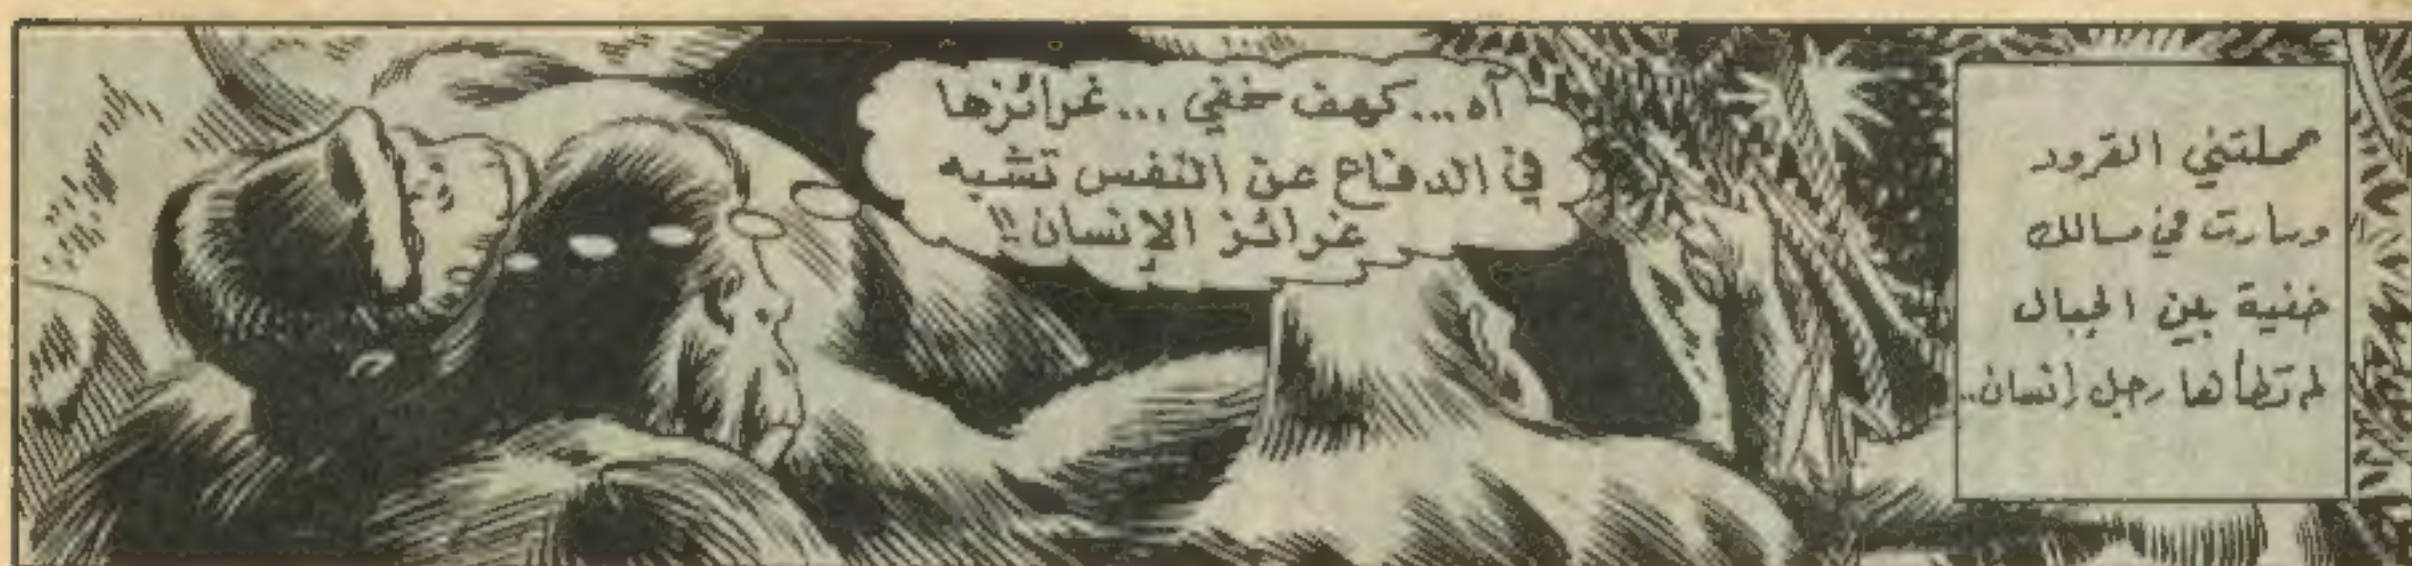 حملتني القرود
وسارت في مسالك
خفية بين الجبال
لم تطأها رجل إنسان..
آه... كهف خفي... غرائزها
في الدفاع عن النفس تشبه
غرائز الإنسان!!